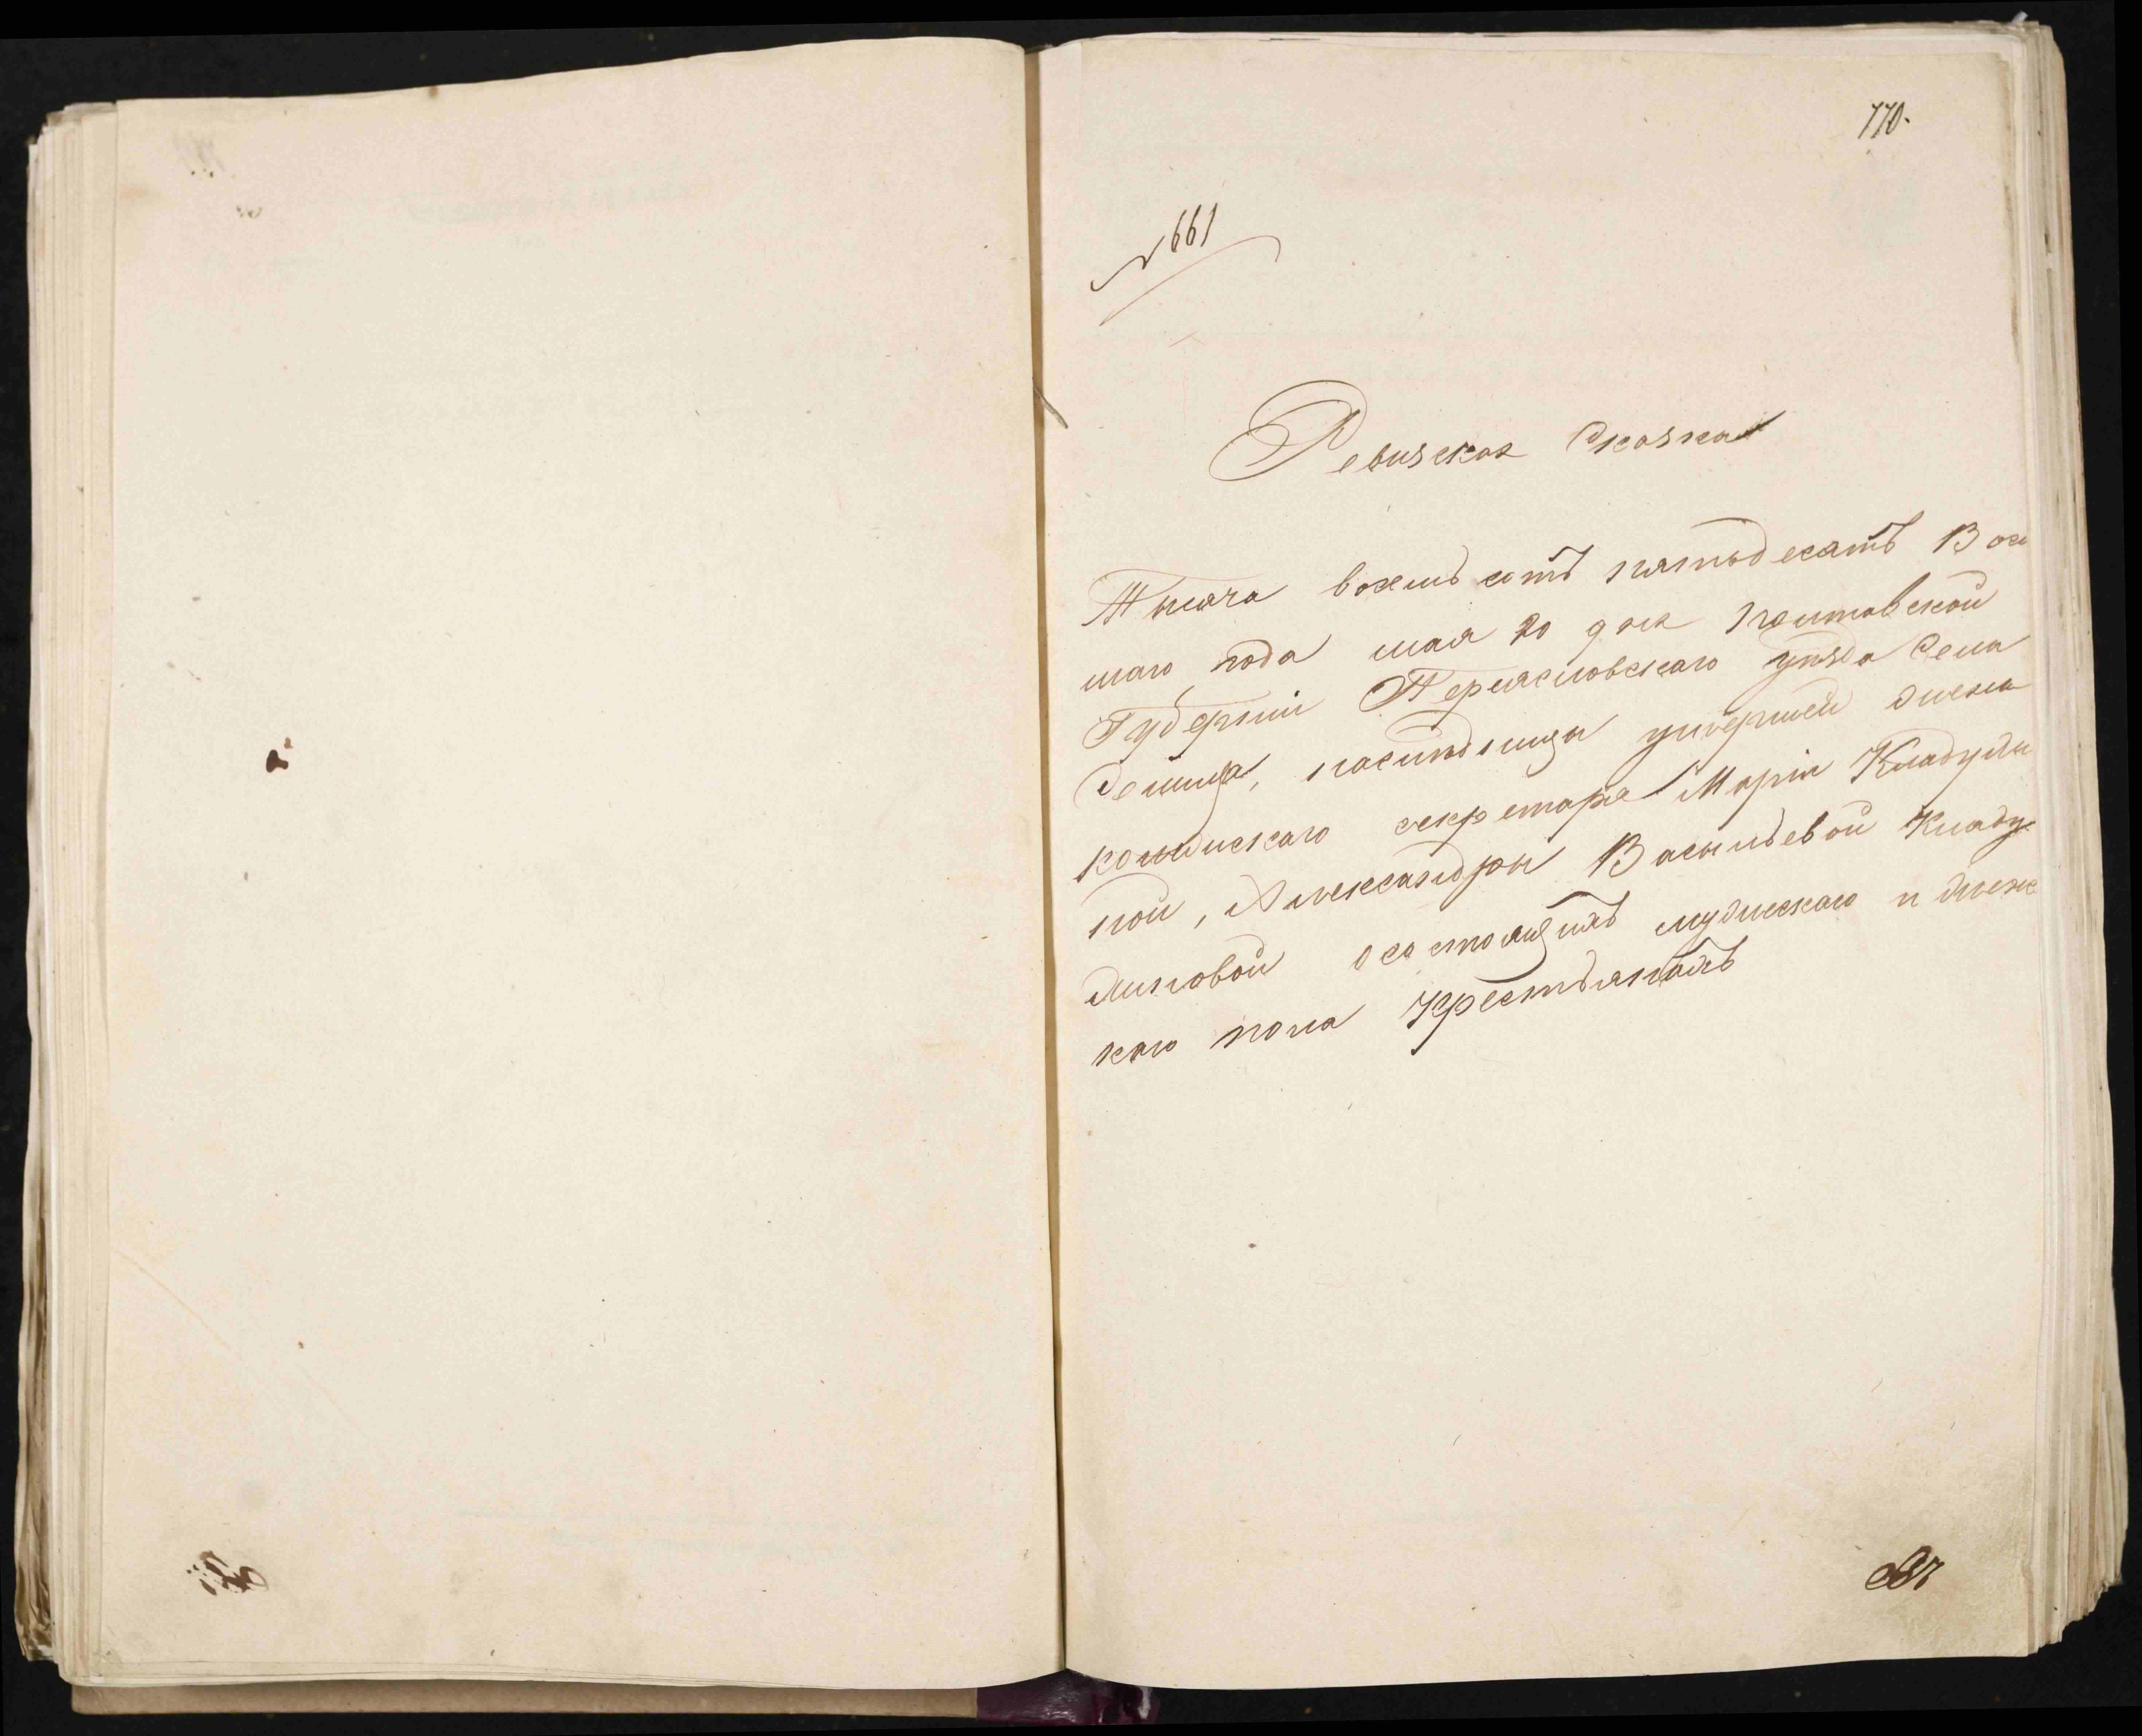 770.
№ 661
Ревизская Сказка
Тысяча восемьсотъ пятьдесятъ Вось
маго года мая 20 дня Полтавской
Губерніи Переяславскаго уѣзда Села
Демица, наслѣдницы умершей
коллежскаго секретаря Маріи Кладули
ной, Александры Васильевой Кладу
линовой о состоящихъ мужескаго и женс
каго пола Крестьянахъ